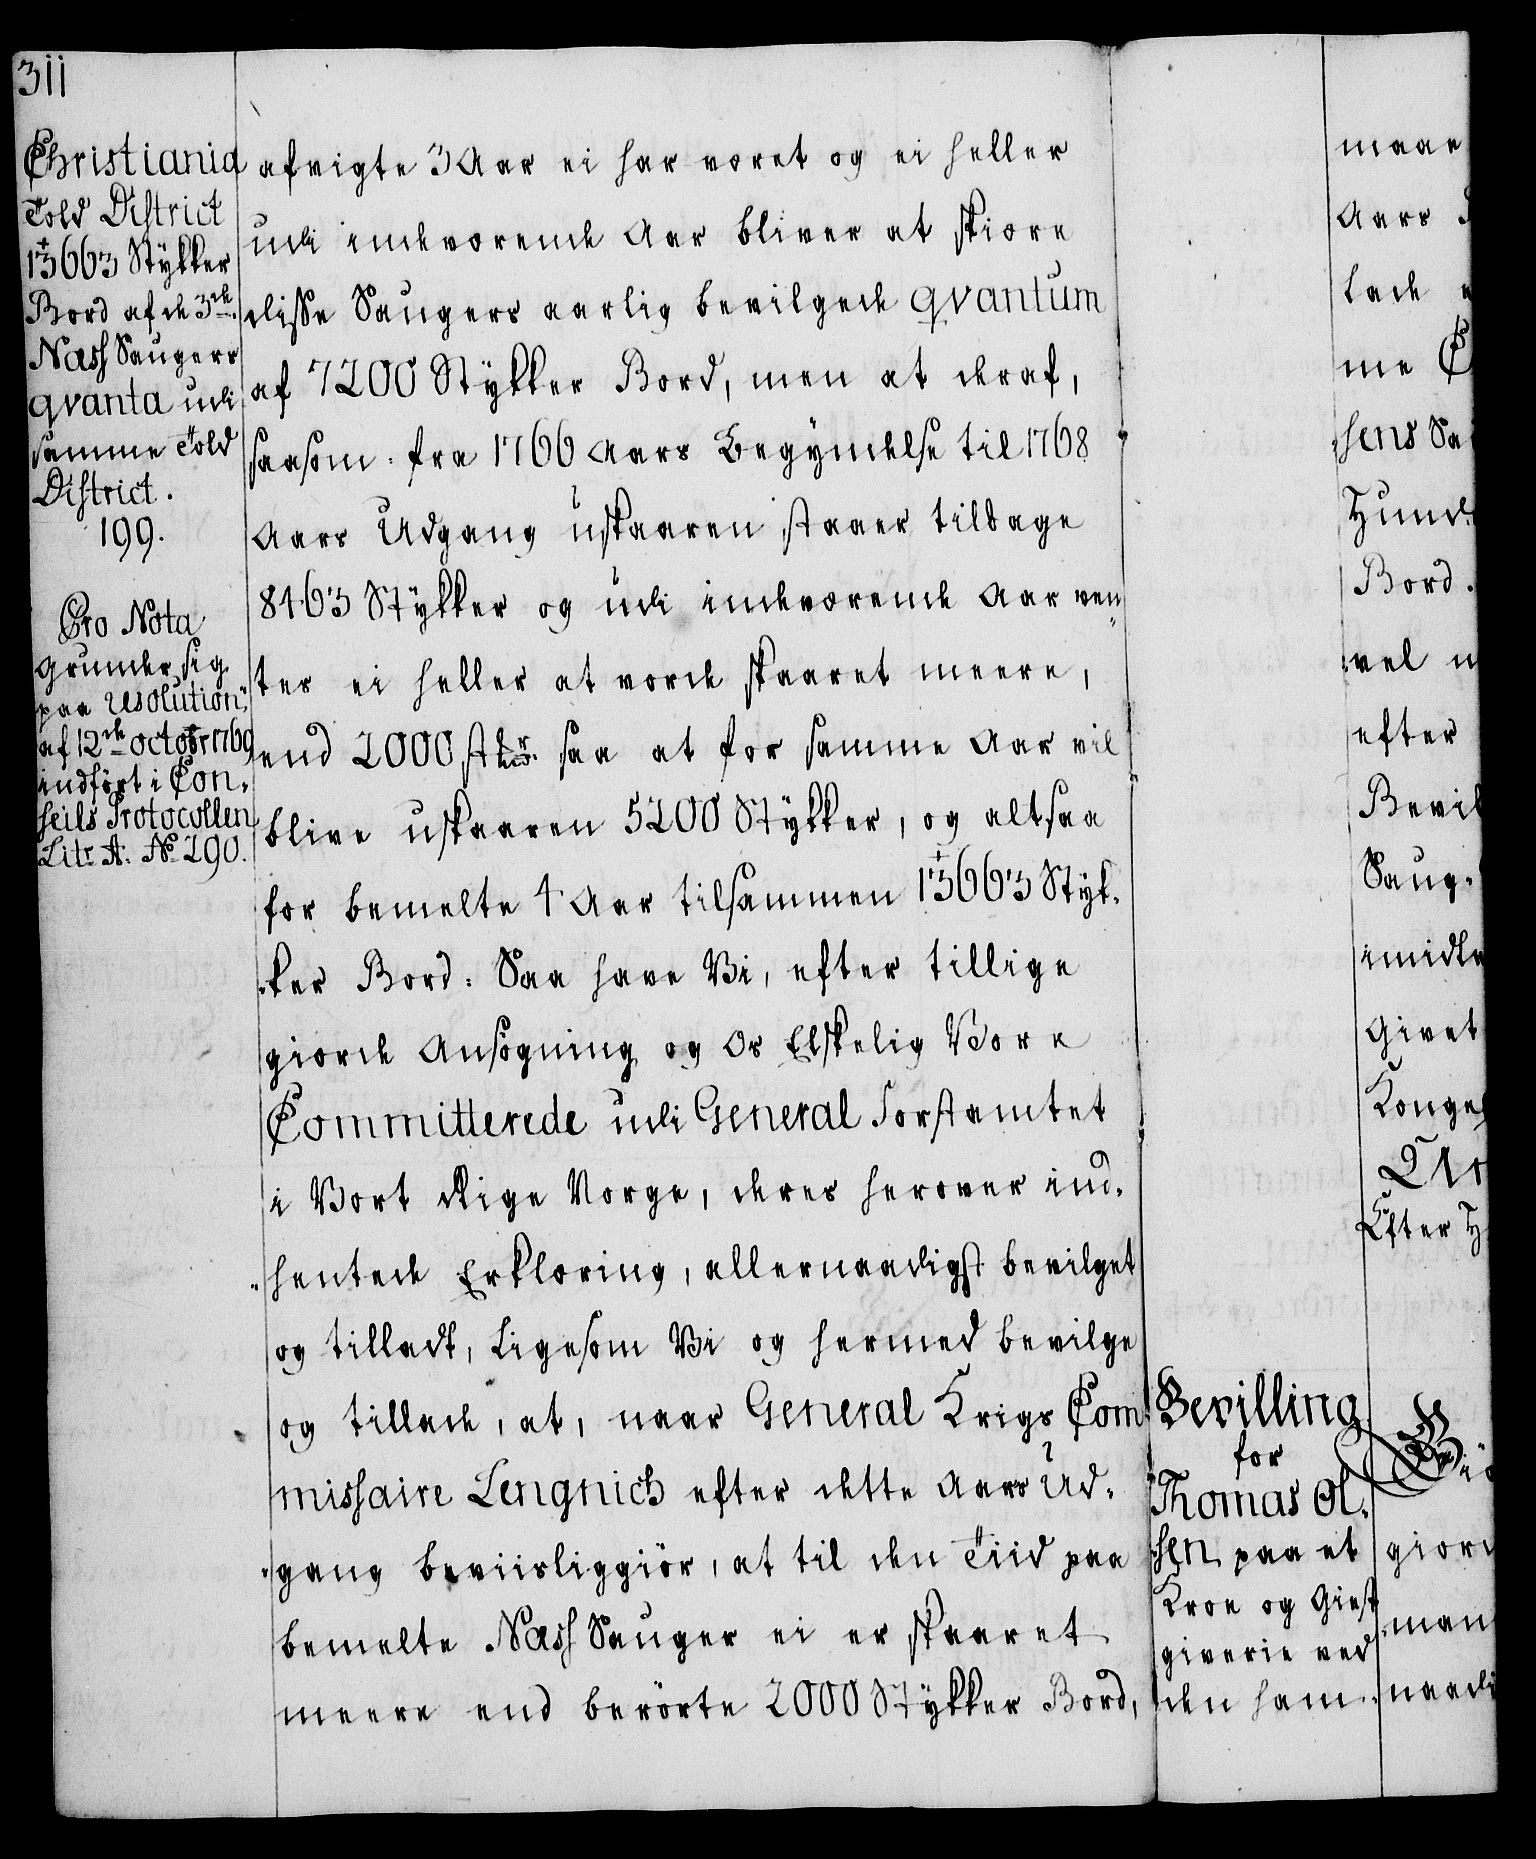 311
Christiania
Told District
13663 Stykker
Bord af de 3de
Næss Saugers
qvanta udi
samme Told
District.
199.
Pro Nota
grunder sig
paa resolution
af 12te octobr 1769
indført i Con-
seils Protocollen
Litr. A. No 290.
afvigte 3 Aar ei har været og ei heller
udi indeværende Aar bliver at skiære
disse Saugers aarlig bevilgede qvantum
af 7200 Stykker Bord, men at deraf,
saasom fra 1766 Aars Begyndelse til 1768
Aars Udgang uskaaren staaer tilbage
8463 Stykker og udi indeværende Aar ven-
tes ei heller at vorde skaaret meere,
end 2000 stkr. saa at for samme Aar vil
blive uskaaren 5200 Stykker, og altsaa
for bemelte 4 Aar tilsammen 13663 Styk-
ker Bord: Saa have Vi, efter tillige
giorde Ansøgning og Os Elskelig Vore
Committerede udi General Forstamtet
i Vort Rige Norge, deres herover ind-
hentede Erklæring, allernaadigst bevilget
og tilladt, Ligesom Vi og hermed bevilge
og tillade, at, naar General Krigs Com
missaire Lengnich efter dette Aars Ud-
gang beviisliggiør, at til den Tiid paa
bemelte Næss Sauger ei er skaaret
meere end berørte 2000 Stykker Bord,
Bevilling
for
Thomas Ol-
sen paa et
Kroe og Giest
giverie ved
den ham-
maae
Aars
lade
me C
sens Sa
Hund
Bord.
vel
efter
Bevil
Saug-
imidle
Givet
Konge
Efter H
giord
man
naadi